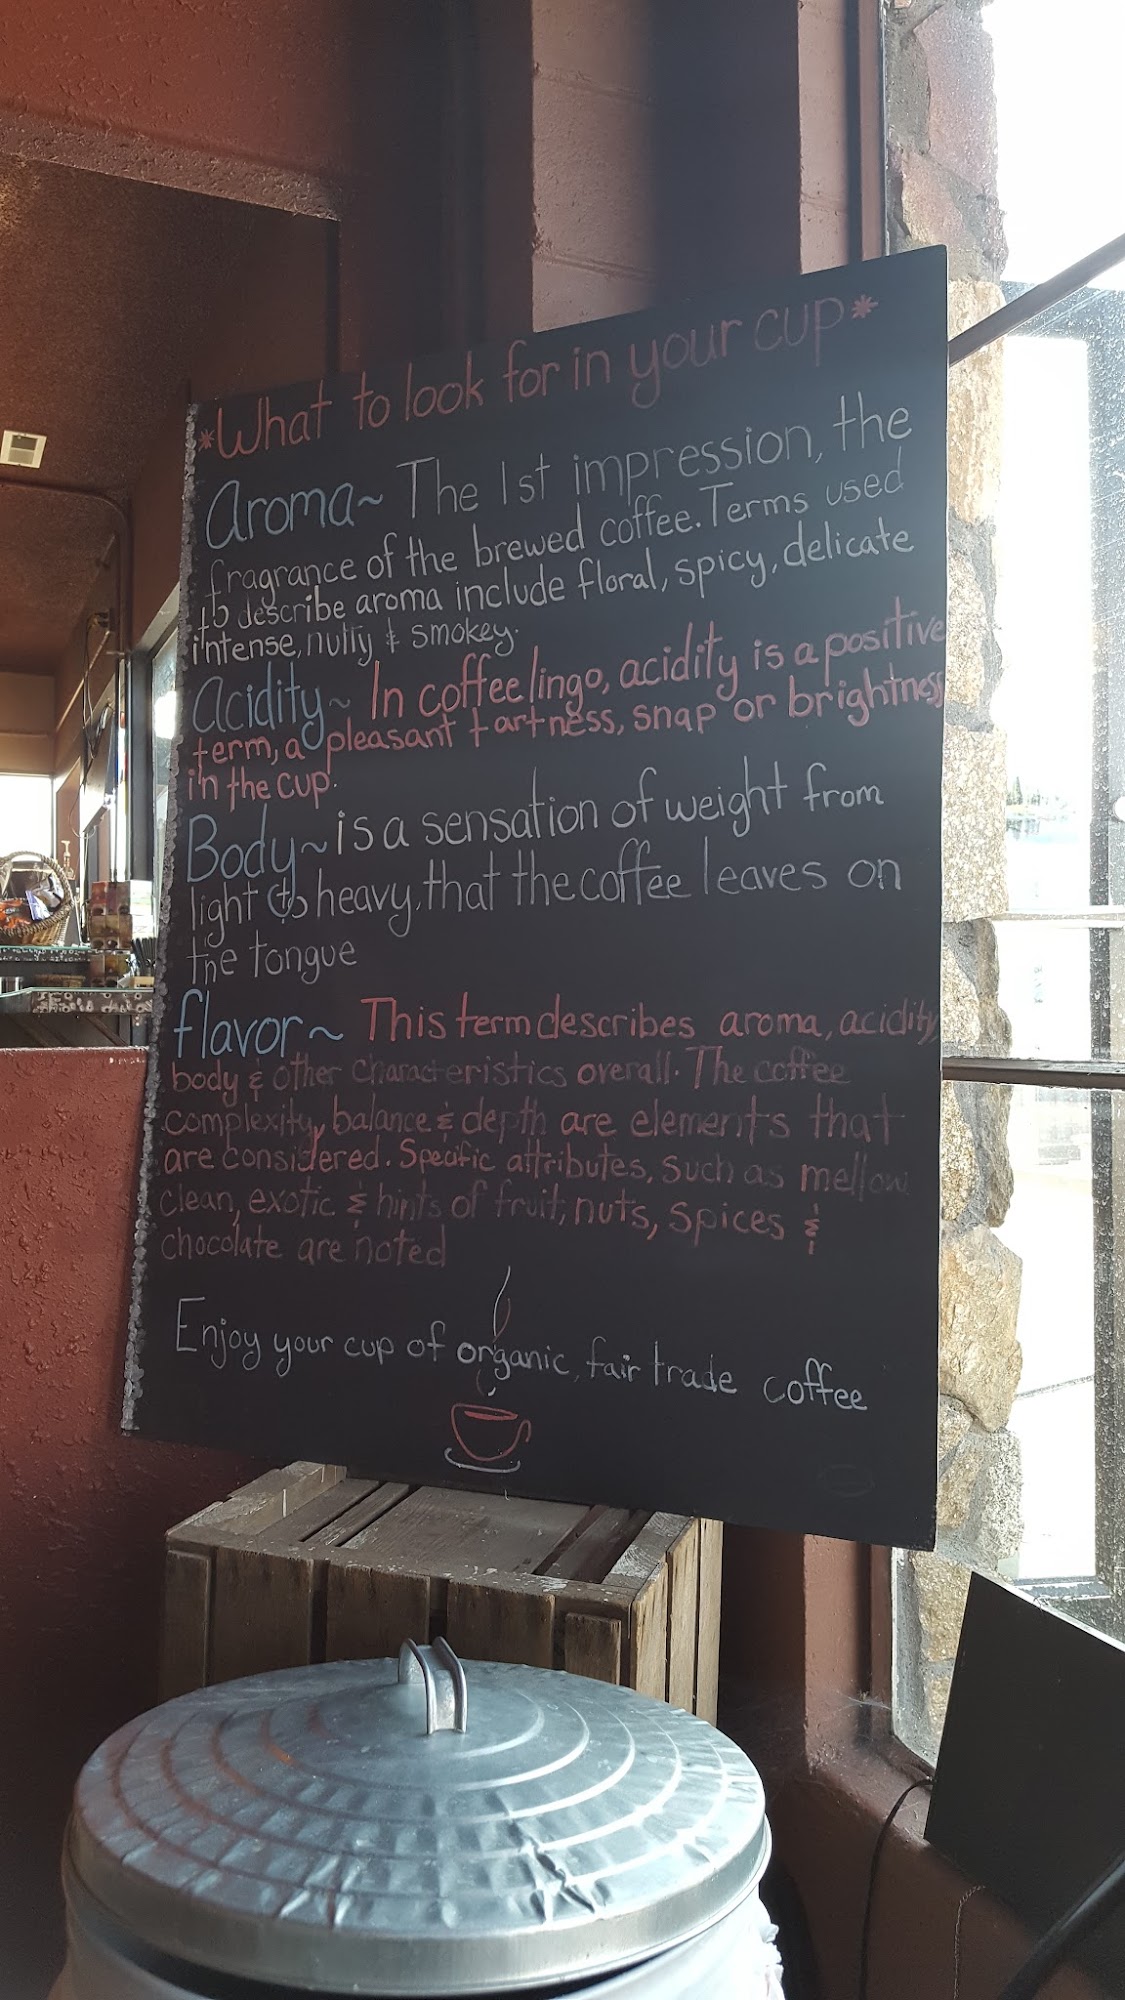 *What to look for in your cup*
Aroma~ The 1st impression, the
fragrance of the brewed coffee. Terms used
to describe aroma include floral, spicy, delicate
intense, nutty & smokey.
Acidity~ In coffee lingo, acidity is a positive
term, a pleasant tartness, snap or brightness
in the cup.
Body~ is a sensation of weight from
light to heavy, that the coffee leaves on
the tongue
flavor~ This term describes aroma, acidity,
body & other characteristics overall. The coffee
complexity, balance & depth are elements that
are considered. Specific attributes, such as mellow
clean, exotic & hints of fruit, nuts, spices &
chocolate are noted
Enjoy your cup of organic, fair trade coffee